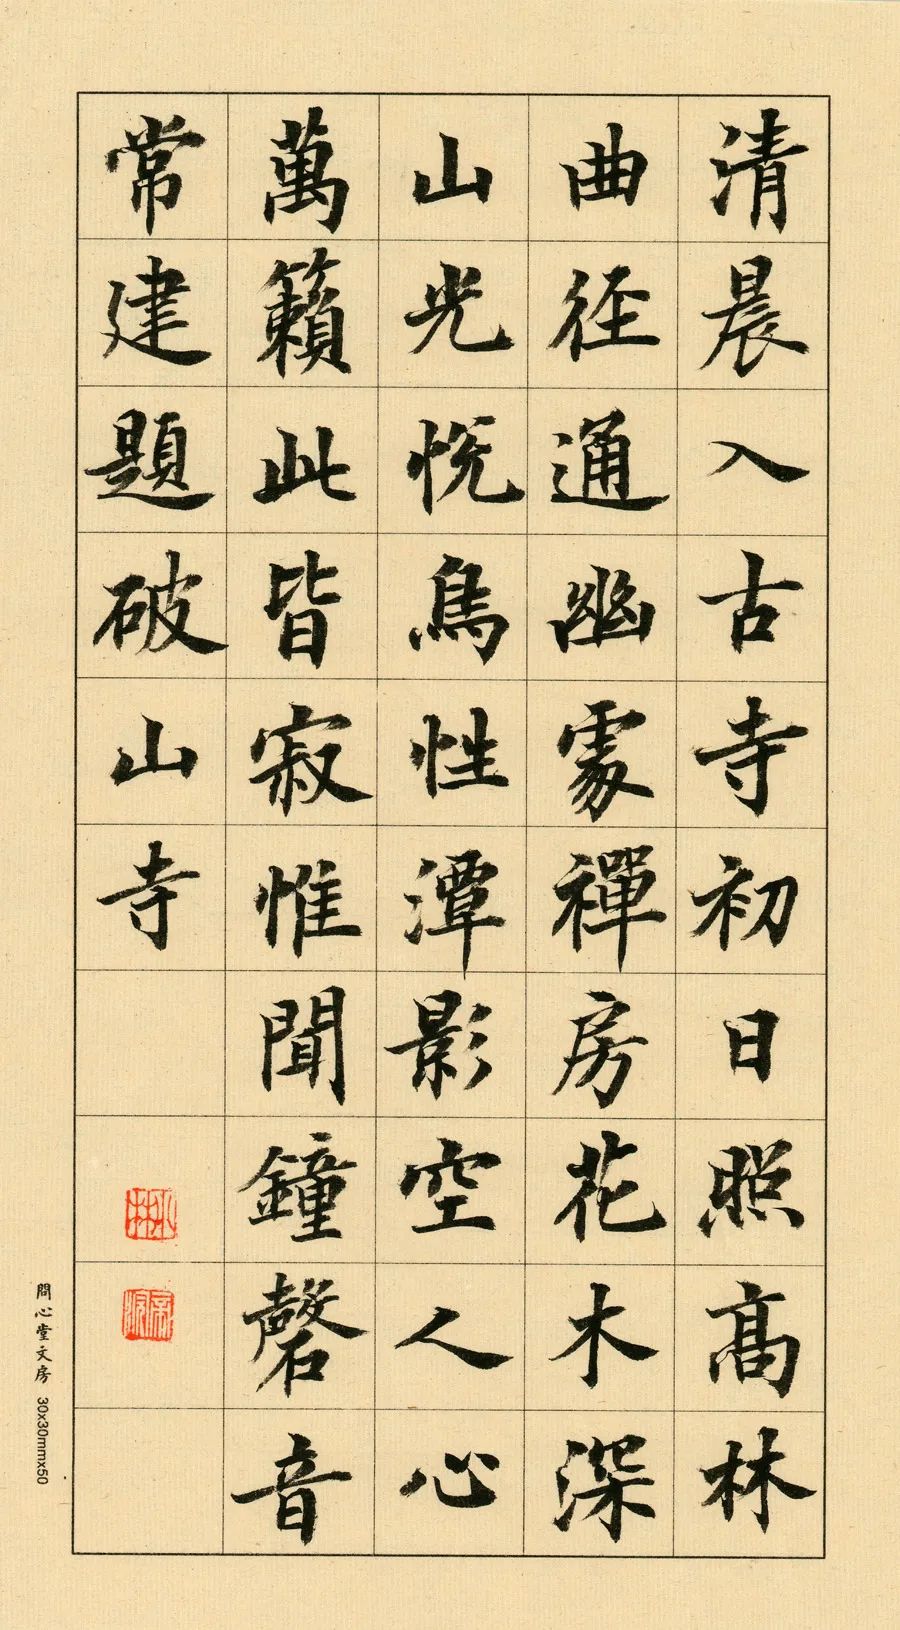 清晨入古寺初日照高林
曲径通幽處禪房花木深
山光悦鳥性潭影空人心
萬籟此皆寂惟聞鐘磬音
常建題破山寺
問心堂文房 30x30mmx50